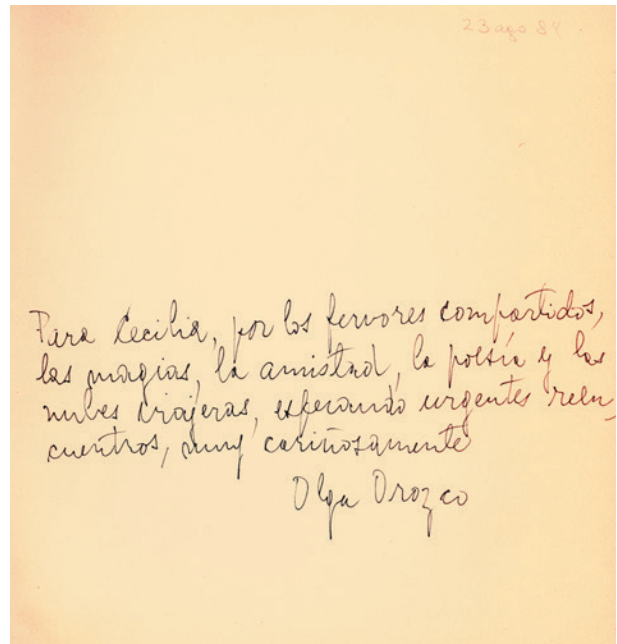 23 ago 84
Para Cecilia, por los fervores compartidos,
las magias, la amistad, la poesía y las
nubes viajeras, esperando urgentes reen
cuentros, muy cariñosamente
Olga Orozco